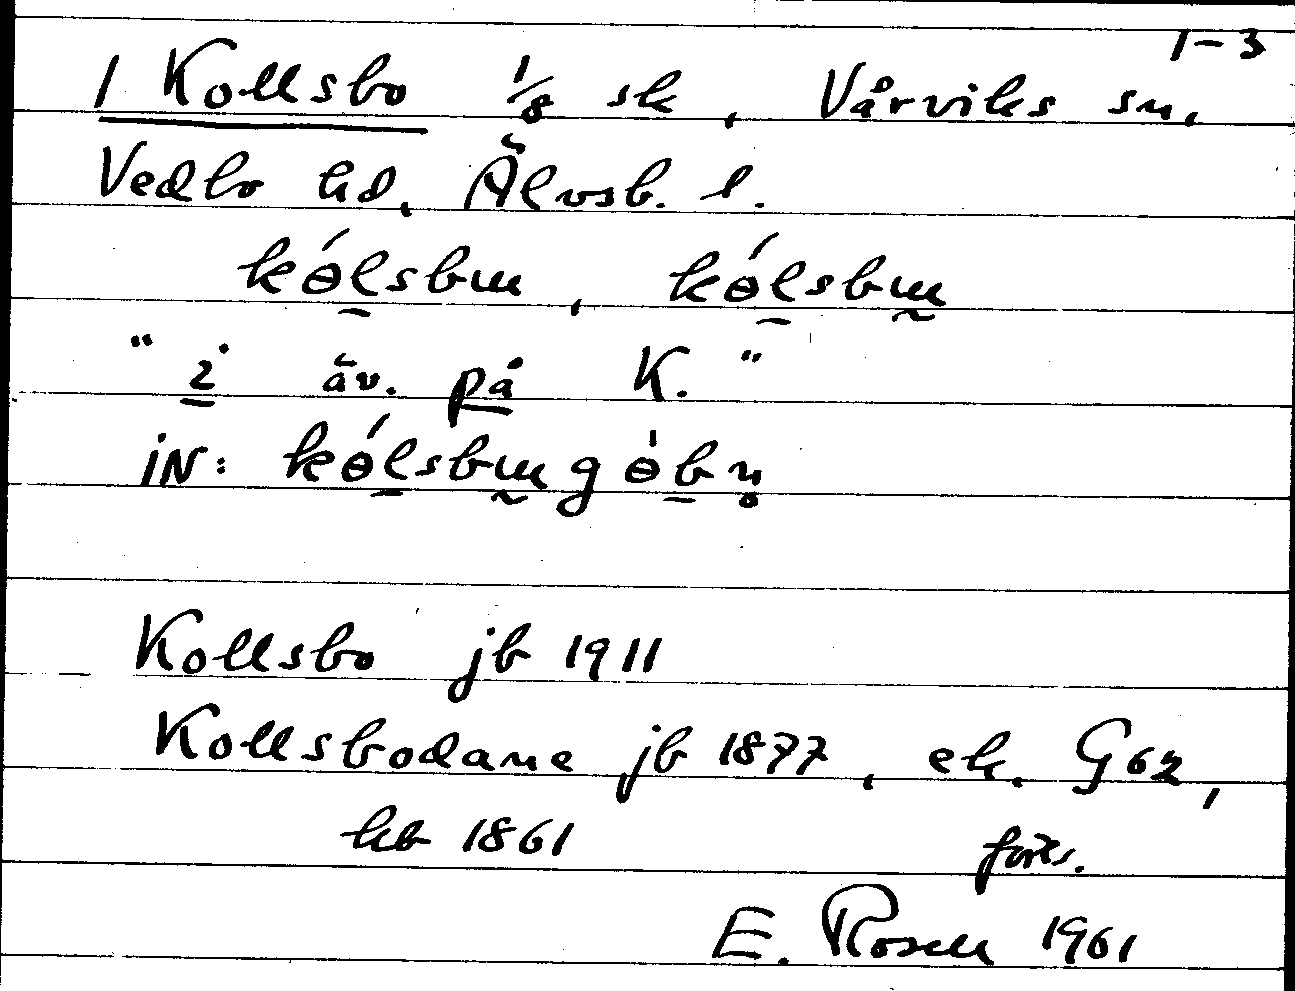 1-3
1 Kollsbo 1/8 sk, Vårviks sn,
Vedbo hd, Älvsb. l.
kɵ́lsbɯ, kɵ́lsbɯ̰
"i äv. på K."
iN: kɵ́lsbɯ̰gɵ̍bn̥
Kollsbo jb 1911
Kollsbodane jb 1877, ek. G62,
hb 1861 forts.
E. Rosell 1961